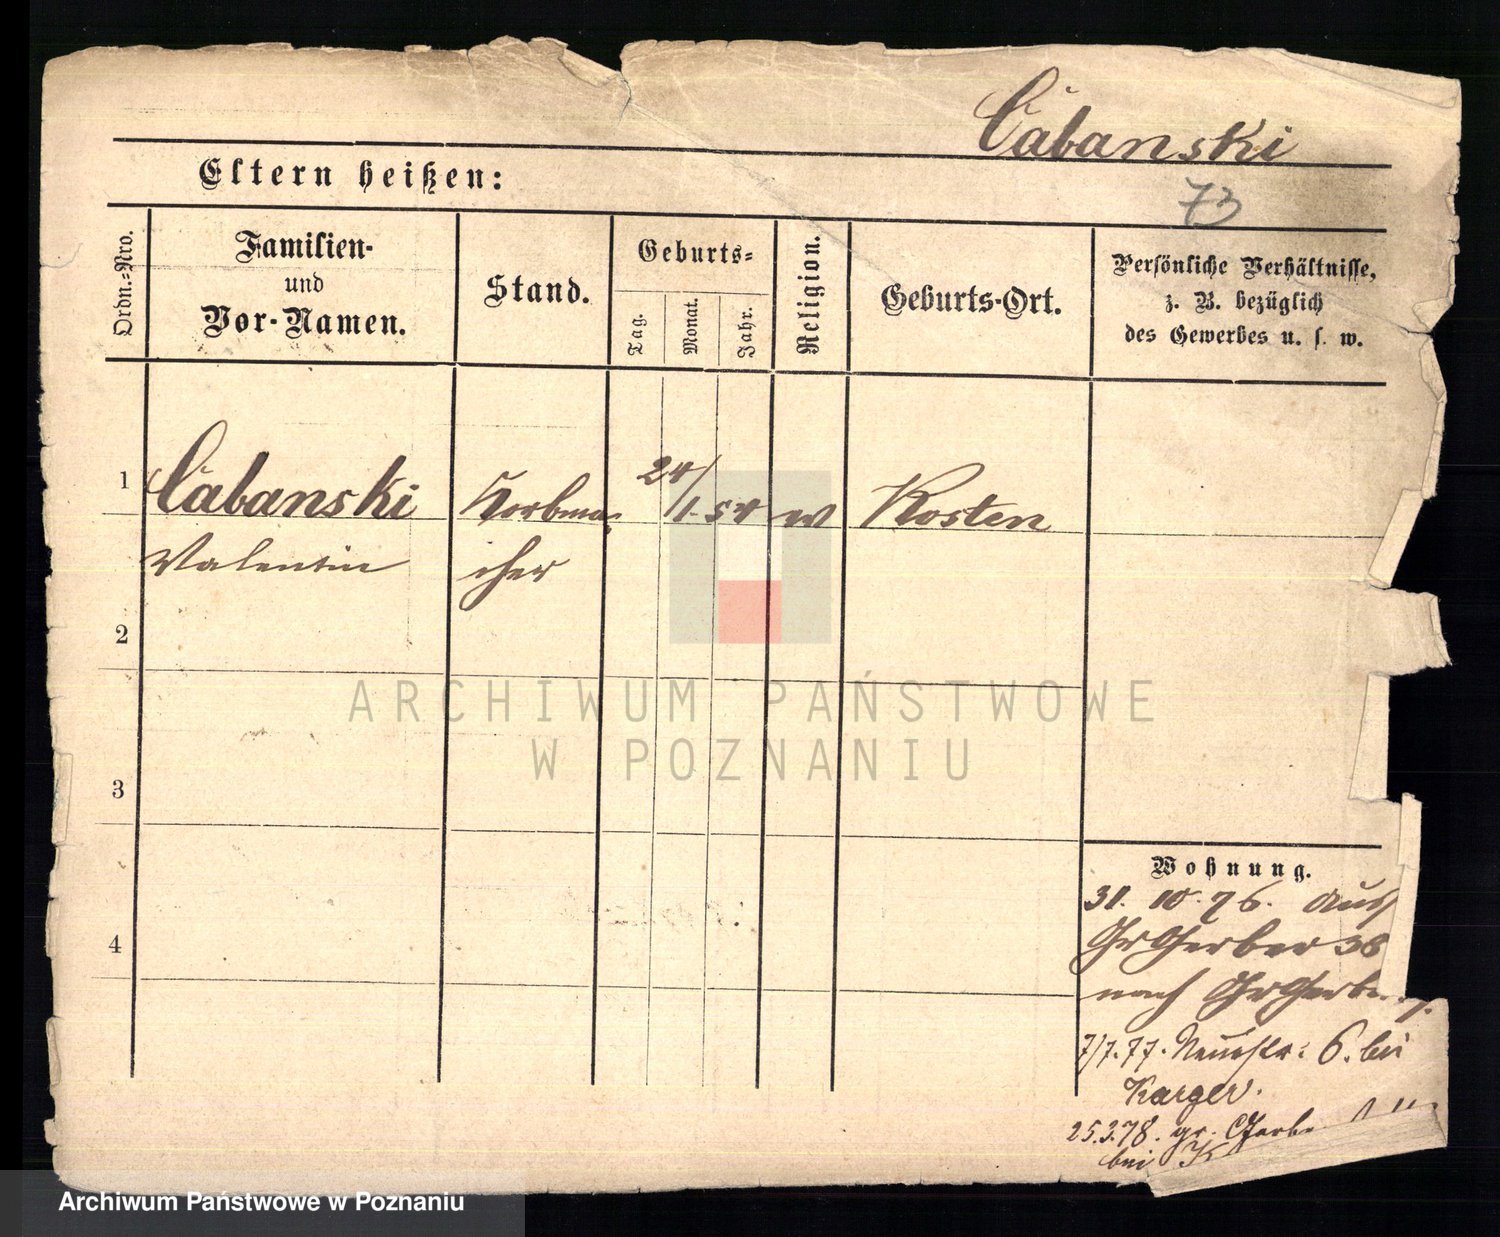 Cabanski
73
Eltern heißen:
Ordn.-Nro.
Familien-
und
Vor-Namen.
Stand.
Geburts-
Tag.
Monat.
Jahr.
Religion.
Geburts-Ort.
Persönliche Verhältnisse,
z. B. bezüglich
des Gewerbes u. s. w.
1
Cabanski
Korbma-
24/1. 54
Kosten
Valentin
cher
2
ARCHIWUM PAŃSTWOWE
W POZNANIU
3
Wohnung.
31. 10. 76. aus
GrGerber 38
4
nach GrGerbe
7/7. 77. Neuestr: 6. bei
Karger.
25.3.78. gr. Gerbe
bei K
Archiwum Państwowe w Poznaniu